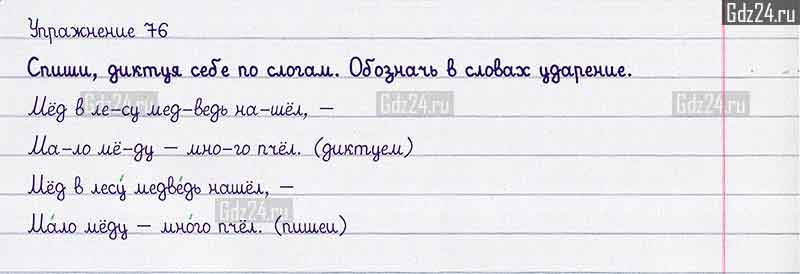 Gdz24.ru
Упражнение 76
Спиши, диктуя себе по слогам. Обозначь в словах ударение.
Мёд в ле-су мед-ведь на-шёл, –
Gdz24.ru Gdz24.ru Gdz24.ru
Ма-ло мё-ду – мно-го пчёл. (диктуем)
Мёд в лесу́ медве́дь нашёл, –
Gdz24.ru
Ма́ло мёду – мно́го пчёл. (пишеи)